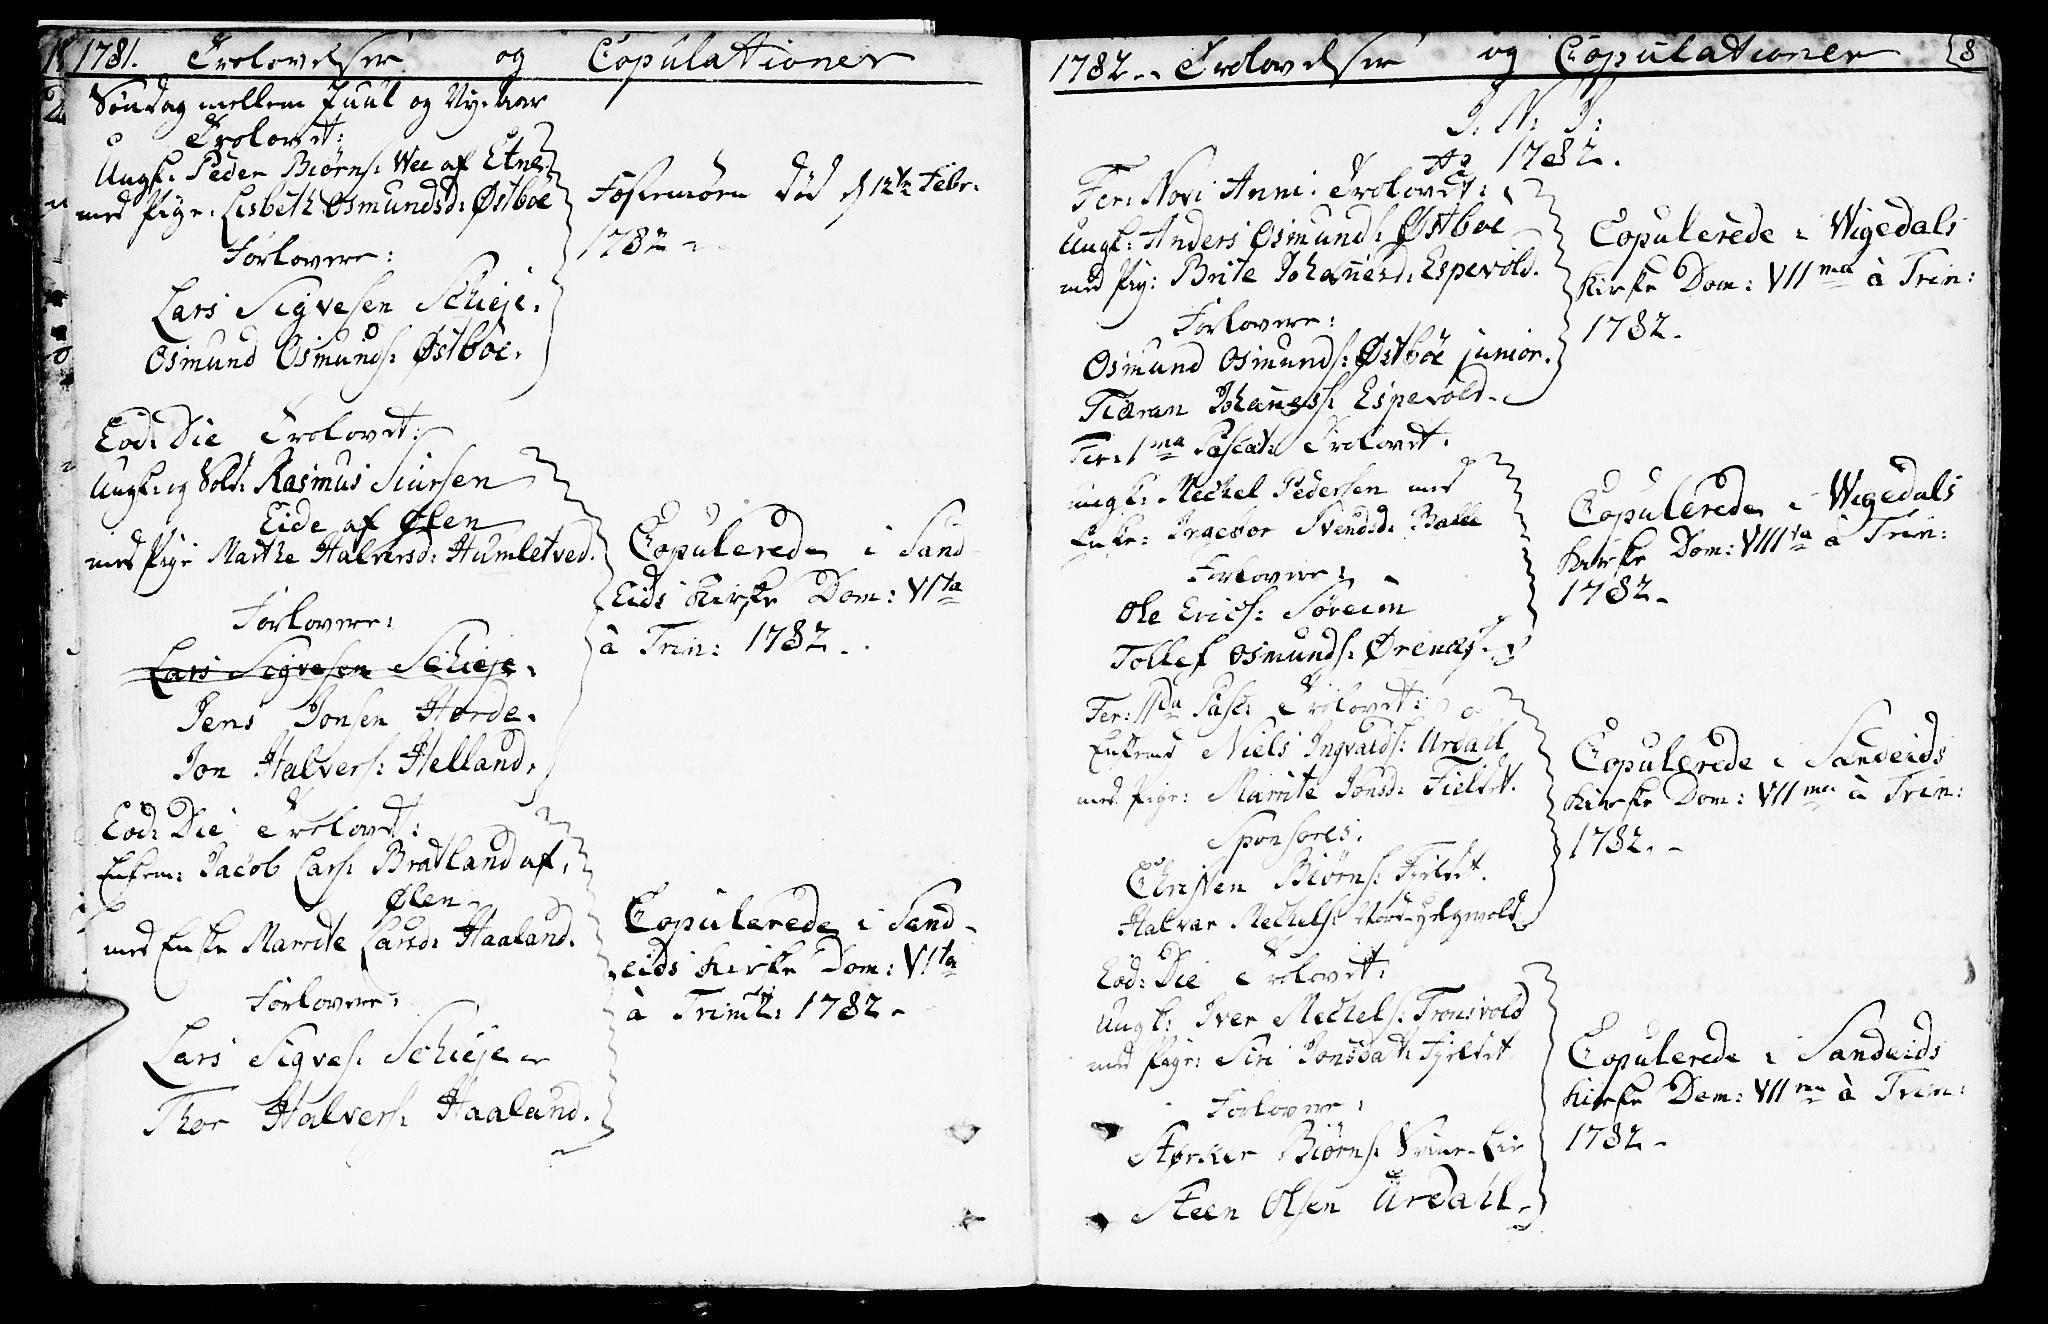 1781. Trolovelser og Copulationer
Søndag mellem Juul og Nye-aar
Trolovet:
Ungk: Peder Biørns: Wee af Etne
med Pige: Lisbeth Osmundsd: Østbøe
Forlovere:
Lars Sigvesen Schieje.
Osmund Osmunds: Østbøe.
Fæstemøen død d 12te Febr:
1782
Eod: Die Trolovet:
Ungk: og Sold: Rasmus Siursen
Eide af Ølen
med Pige Marthe Halversd: Humletved.
Forlovere:
Lars Sigvesen Schieje.
Jens Jonsen Hørde.
Jon Halvers: Helland.
Copulerede i Sand
Eids Kirke Dom: VIta
à Trin: 1782.
Eod: Die Trolovet:
Enkem: Jacob Lars: Bratland af
Ølen
med Enke Marrite Larsd: Haaland.
Forlovere:
Lars Sigves: Schieje
Thor Halvers: Haaland.
Copulerede i Sand-
eids Kirke Dom: VIta
à Trinit: 1782.
1782 Trolovelser og Copulationer 8
I: N: J:
Ao 1782.
Fer: Novi Anni Trolovet:
Ungk: Anders Osmunds: Østbøe
med Pig: Brite Johanesd: Espevold.
Forlovere:
Osmund Osmunds: Østbøe junior.
Tiæran Johanes: Espevold.
Copulerede i Wigedals
Kirke Dom: VIIma à Trin:
1782.
Fer: 1ma Pascat: Trolovet:
ungk: Mechel Pedersen med
Enke: Ingebor Svendsd: Bakke
Forlovere:
Ole Erics: Søreim
Tollef Osmunds: Ørenæs
Copulerede i Wigedals
Kirke Dom: VIIIva à Trin:
1782.
Fer: IIda Pasc: Trolovet:
Enkemd Niels Ingvalds: Urdahl
med Pige: Marrite Jonsd: Fieldet.
Sponsores:
Christen Biørns: Fieldet.
Halvar Mechels: Nord-Helgevold
Copulerede i Sandeids
Kirke Dom: VIIma à Trin:
1782.
Eod: Die Trolovet:
Ungk: Iver Mechels: Tronsvold
med Pige: Siri Jonsdat: Fjeldet
Forlovere:
Størker Biørns: Svine-Lie
Steen Olsen Urdahl
Copulerede i Sandeids
Kirke Dom: VIIma à Trin:
1782.